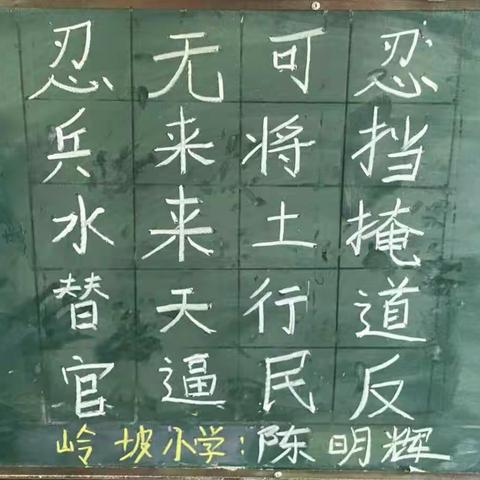 忍无可忍
兵来将挡
水来土掩
替天行道
官逼民反
岭坡小学:陈明辉